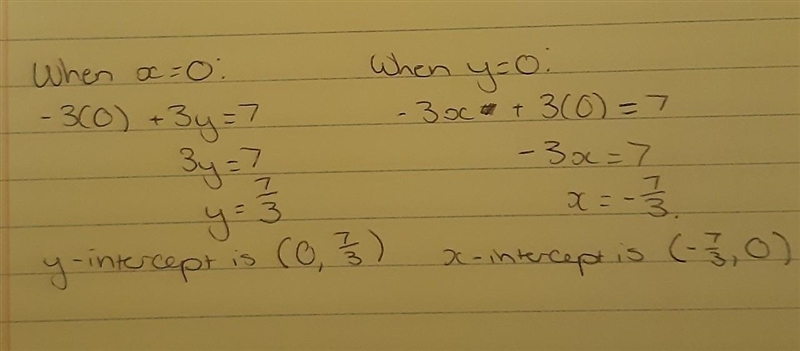 When x=0:
-3(0) + 3y = 7
3y = 7
y = 7/3
y-intercept is (0, 7/3)
When y=0:
-3x + 3(0) = 7
-3x = 7
x = -7/3.
x-intercept is (-7/3, 0)